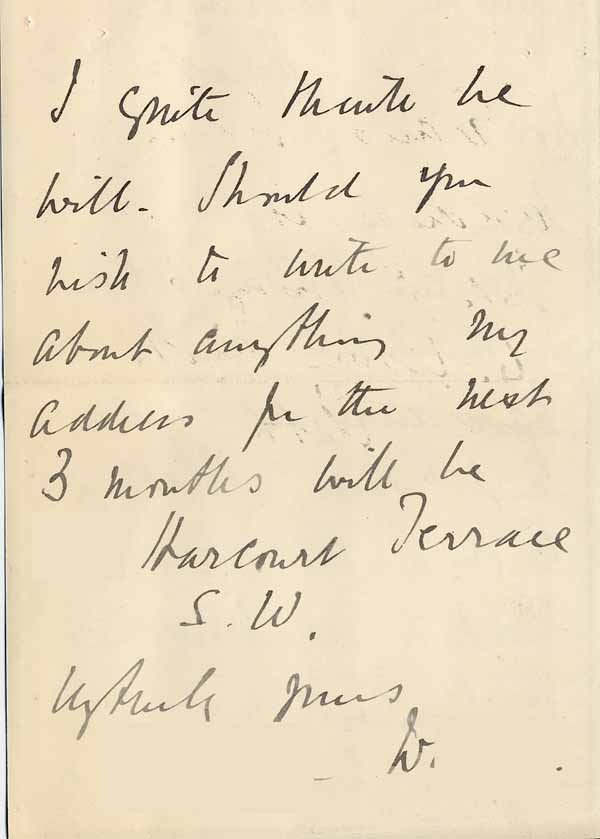 I quite think he
will. Should you
wish to write to me
about anything my
address for the next
3 months will be
Harcourt Terrace
S. W.
Vy truly yours
W.